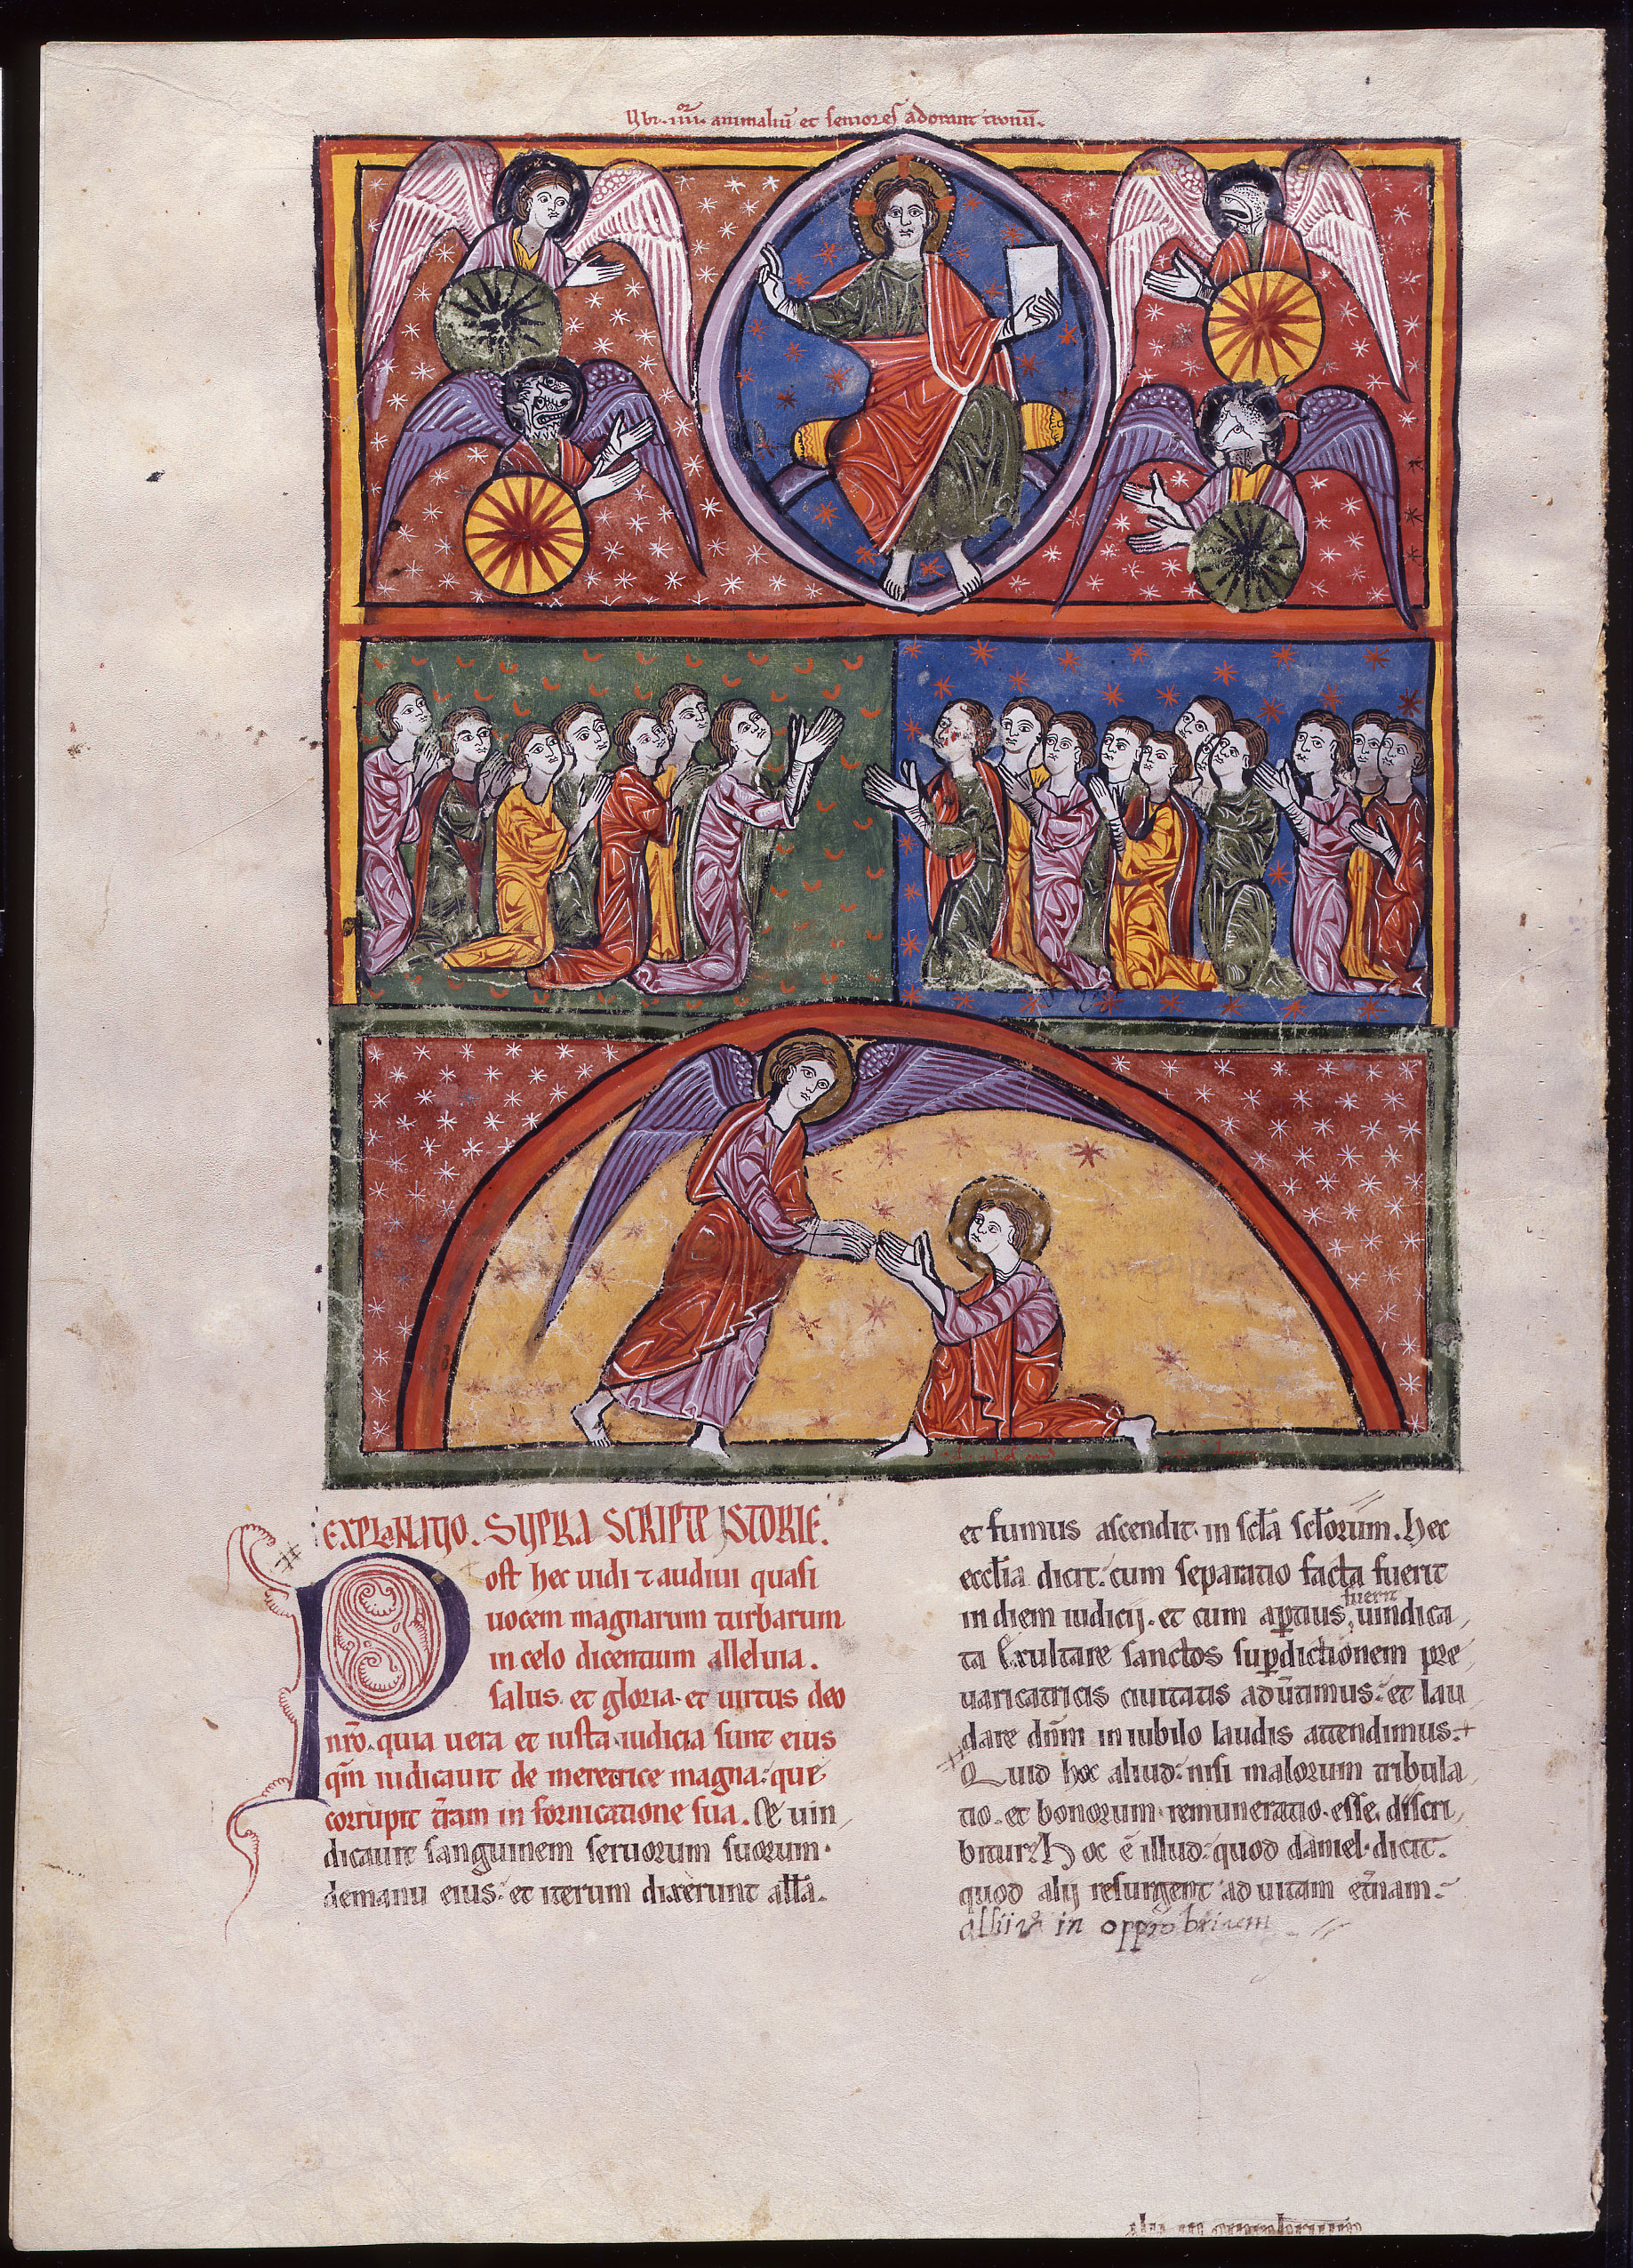 Ubi .IIIIor. animaliū et seniores adorant tronū.
EXPLANATIO. SUPRA SCRIPTE ISTORIE.
Post hec uidi ⁊ audiui quasi
uocem magnarum turbarum
in celo dicentium alleluia.
salus. et gloria. et uirtus deo
nr̄o. quia uera et iusta iudicia sunt eius
qm̄ iudicauit de meretrice magna. que
corrupit tr̄am in fornicatione sua. Et uin
dicauit sanguinem seruorum suorum.
demanu eius. et iterum dixerunt all'a.
et fumus ascendit. in scl'a scl'orum. Hec
eccl'ia dicit. cum separatio facta fuerit
in diem iudicij. et cum aptius fuerit uindica
ta Exultare sanctos sup̄dictionem pre
uaricatricis ciuitatis aduertimus. et lau
dare dn̄m in iubilo laudis attendimus.
Quid hoc aliud. nisi malorum tribula
tio. et bonorum remuneratio. esse discri
bitur? Hoc ē illud. quod daniel. dicit.
quod alij resurgent ad uitam et̄nam.
allii in opprobrium
alii in opprobrium